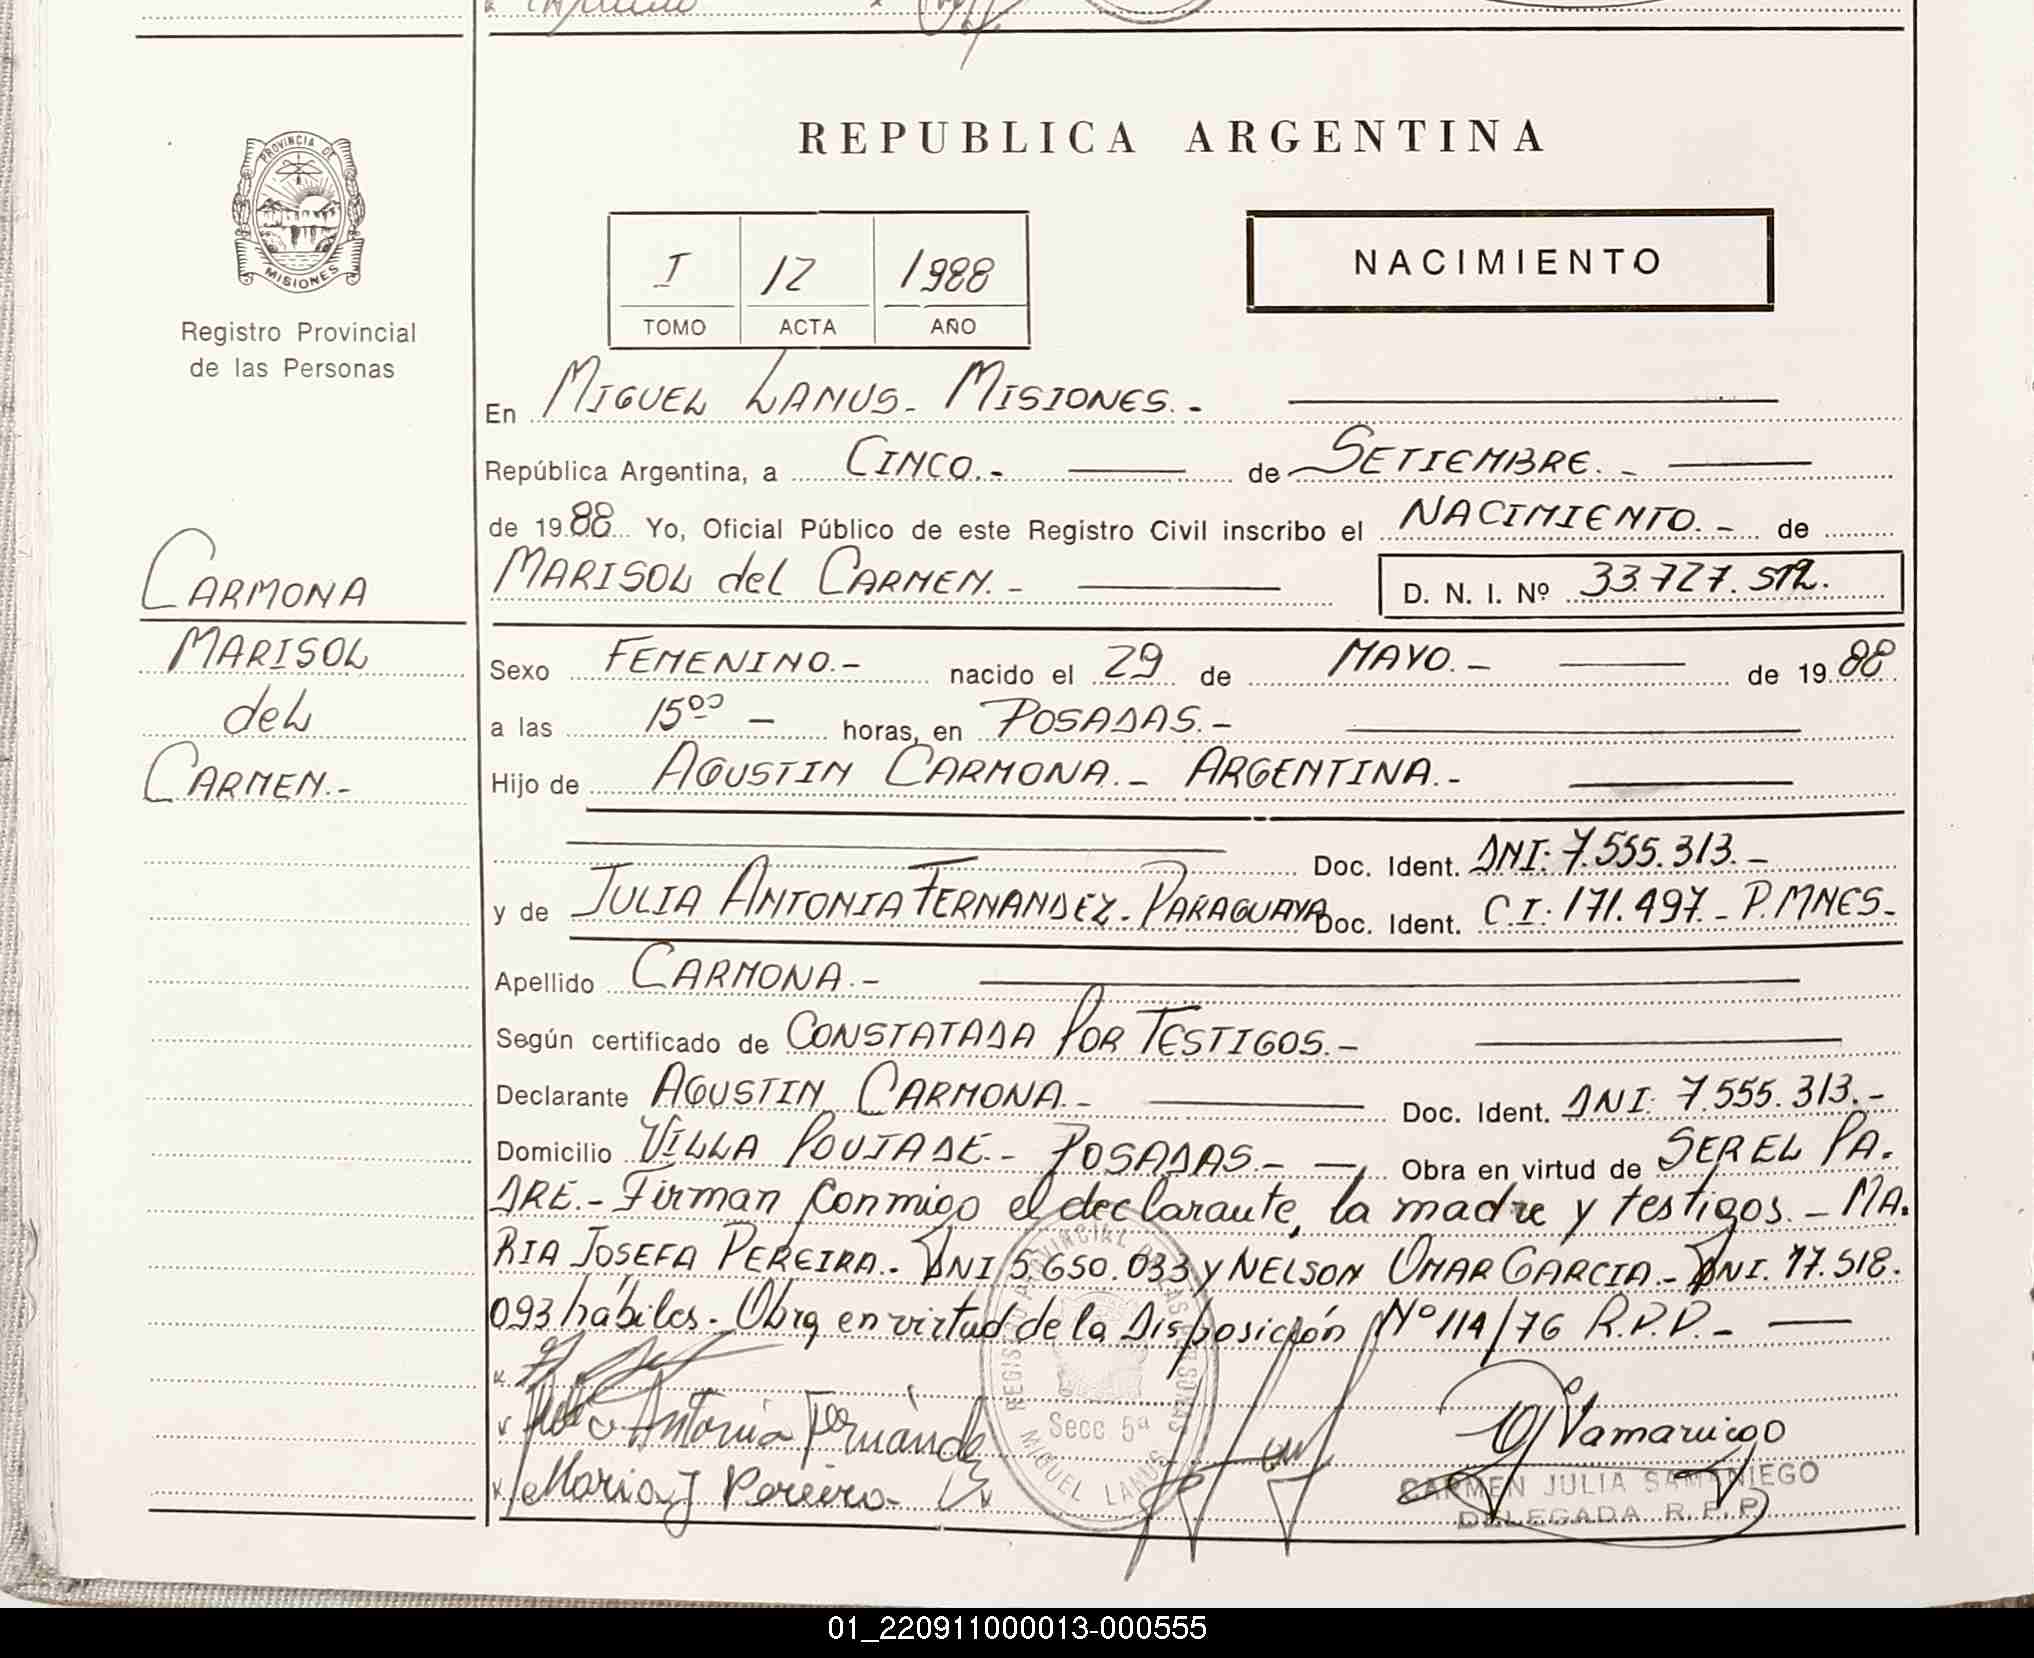 REPUBLICA ARGENTINA
PROVINCIA DE
MISIONES
Registro Provincial
de las Personas
I 12 1988
TOMO ACTA AÑO
NACIMIENTO
En MIGUEL LANUS - MISIONES.-
República Argentina, a CINCO.- de SETIEMBRE.-
de 1988 Yo, Oficial Público de este Registro Civil inscribo el NACIMIENTO.- de
MARISOL del CARMEN.- D. N. I. Nº 33.727.512.
CARMONA
MARISOL
del
CARMEN.-
Sexo FEMENINO.- nacido el 29 de MAYO.- de 1988
a las 15⁰⁰ - horas, en POSADAS.-
Hijo de AGUSTIN CARMONA.- ARGENTINA.-
Doc. Ident. DNI: 7.555.313.-
y de JULIA ANTONIA FERNANDEZ.- PARAGUAYA Doc. Ident. C.I: 171.497.- P.MNES-
Apellido CARMONA.-
Según certificado de CONSTATADA POR TESTIGOS.-
Declarante AGUSTIN CARMONA.- Doc. Ident. DNI: 7.555.313.-
Domicilio VILLA POUJADE.- POSADAS.- Obra en virtud de SER EL PA-
DRE.- Firman conmigo el declarante, la madre y testigos.- MA-
RIA JOSEFA PEREIRA.- DNI 5.650.033 y NELSON OMAR GARCIA.- DNI. 17.518.
093 hábiles.- Obra en virtud de la Disposición Nº 114/76 R.P.P.-
Antonia Fernández
Maria J Pereira
REGISTRO PROVINCIAL DE LAS PERSONAS
Secc 5ª
MIGUEL LANUS
CARMEN JULIA SAMANIEGO
DELEGADA R.P.P.
01_220911000013-000555